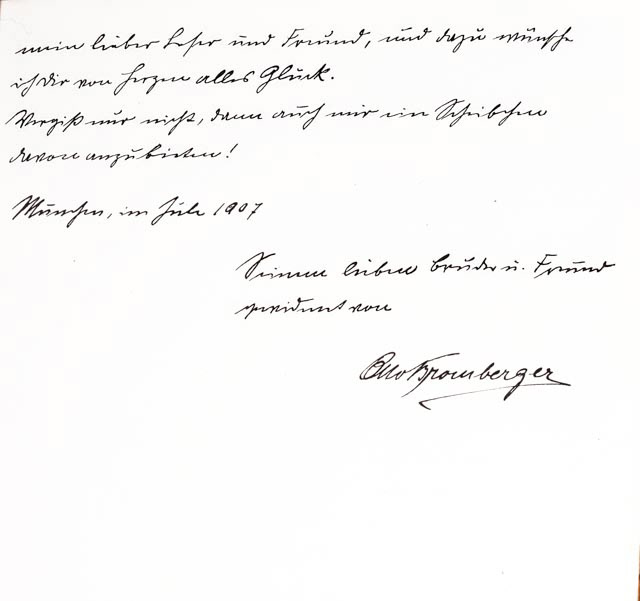 mein lieber Leser und Freund, und dazu wünsche
ich Dir von Herzen alles Glück.
Vergiß nur nicht, dann auch mir ein Scheibchen
davon anzubieten!
München, im Juli 1907
Seinem lieben Bruder u. Freund
gewidmet von
Otto Bromberger